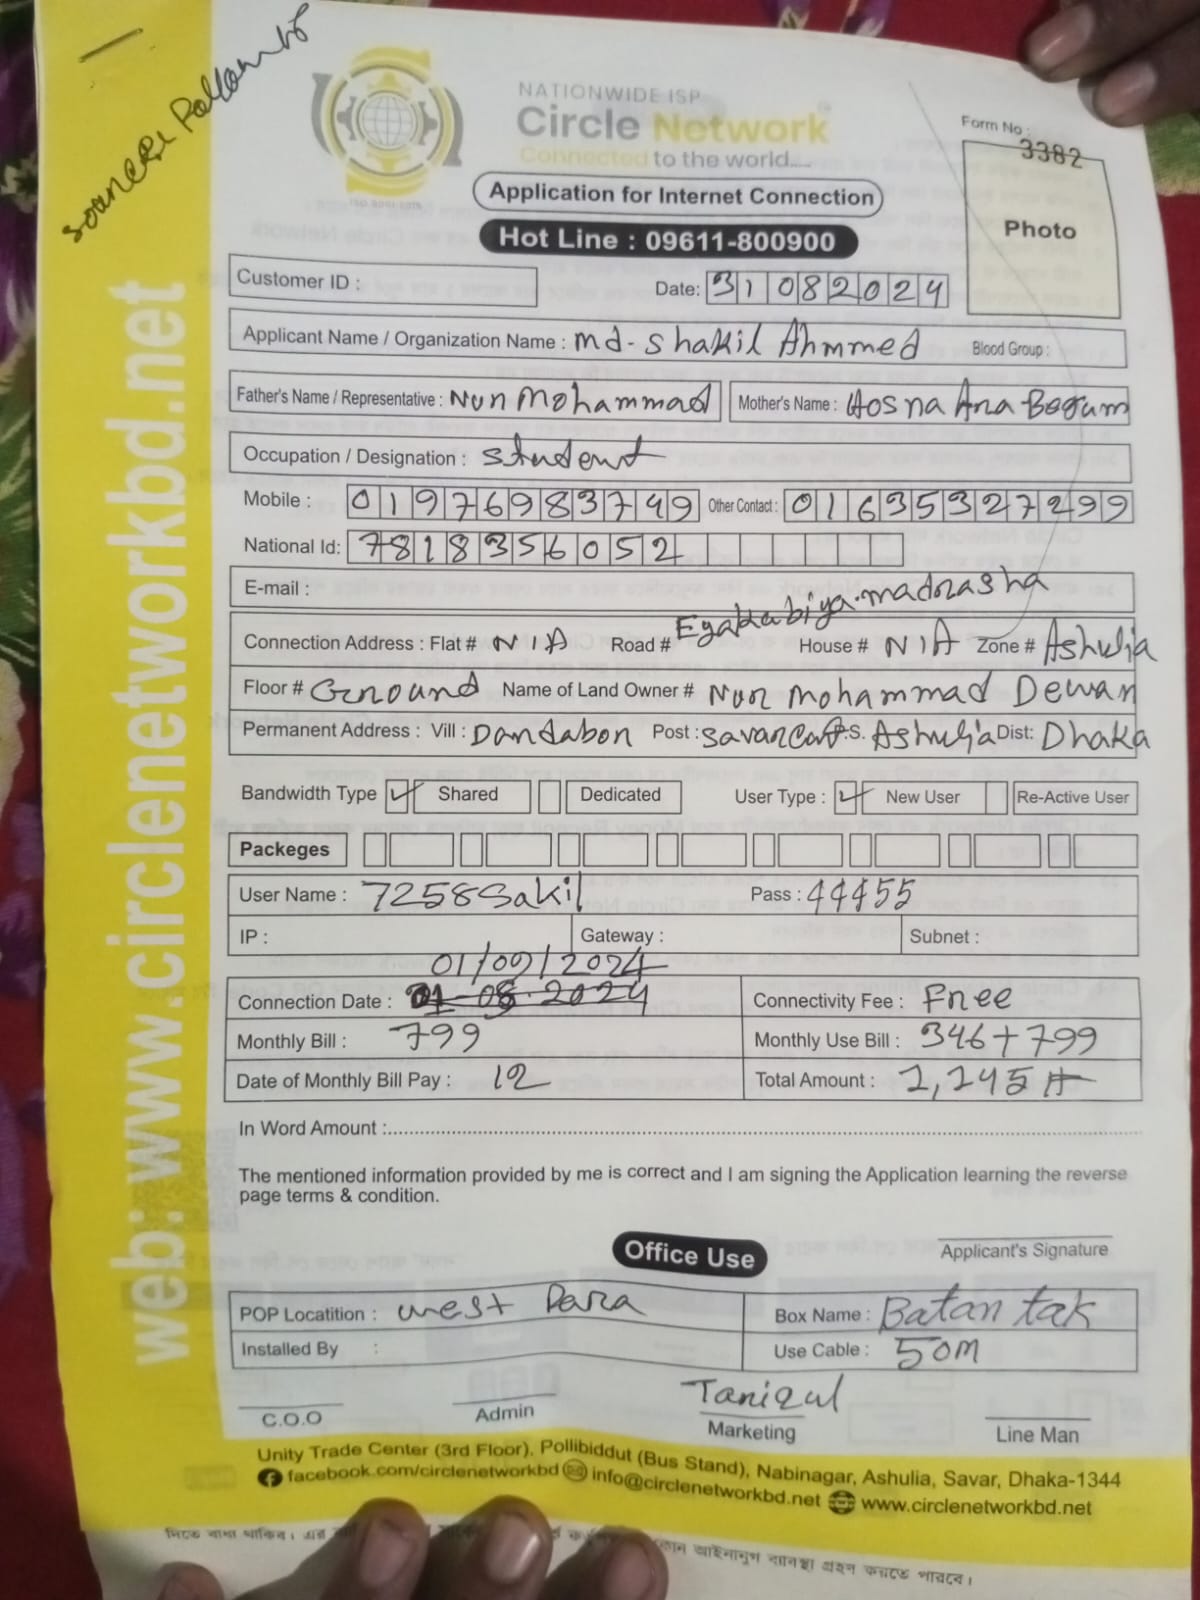 NATIONWIDE ISP
Circle Network
Connected to the world....
Form No :
3382
Application for Internet Connection
Photo
Hot Line : 09611-800900
Customer ID :
Date: 31082024
Applicant Name / Organization Name : md- Shakil Ahmmed Blood Group :
Father's Name / Representative : Nur Mohammad Mother's Name : Hosna Ara Begum
Occupation / Designation : Student
Mobile : 01976983749 Other Contact : 01635327299
National Id: 7818356052
E-mail :
Connection Address : Flat # N/A Road # madrasha House # N/A Zone # Ashulia
Floor # Ground Name of Land Owner # Nur Mohammad Dewan
Permanent Address : Vill : Dandabon Post : Savar Cant P.S. Ashulia Dist: Dhaka
Bandwidth Type Shared Dedicated User Type : New User Re-Active User
Packeges
User Name : 7258Sakil Pass : 44455
IP : Gateway : Subnet :
01/09/2024
Connection Date : 01-08-2024 Connectivity Fee : Free
Monthly Bill : 799 Monthly Use Bill : 346+799
Date of Monthly Bill Pay : 12 Total Amount : 1,145
In Word Amount :
The mentioned information provided by me is correct and I am signing the Application learning the reverse
page terms & condition.
Applicant's Signature
Office Use
POP Locatition : West Para Box Name : Batan tak
Installed By : Use Cable : 50M
Tariqul
C.O.O Admin Marketing Line Man
Unity Trade Center (3rd Floor), Pollibiddut (Bus Stand), Nabinagar, Ashulia, Savar, Dhaka-1344
facebook.com/circlenetworkbd info@circlenetworkbd.net www.circlenetworkbd.net
web: www.circlenetworkbd.net